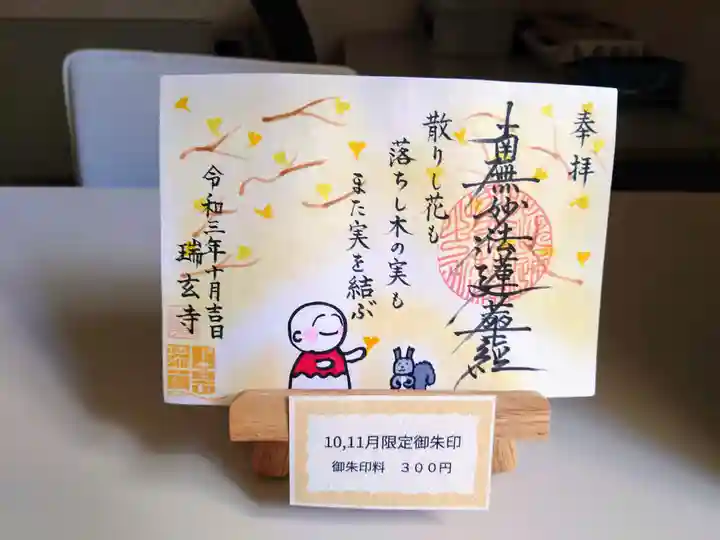 奉拝
南無妙法蓮華経
散りし花も
落ちし木の実も
また実を結ぶ
令和三年十月吉日
瑞玄寺
10,11月限定御朱印
御朱印料　３００円